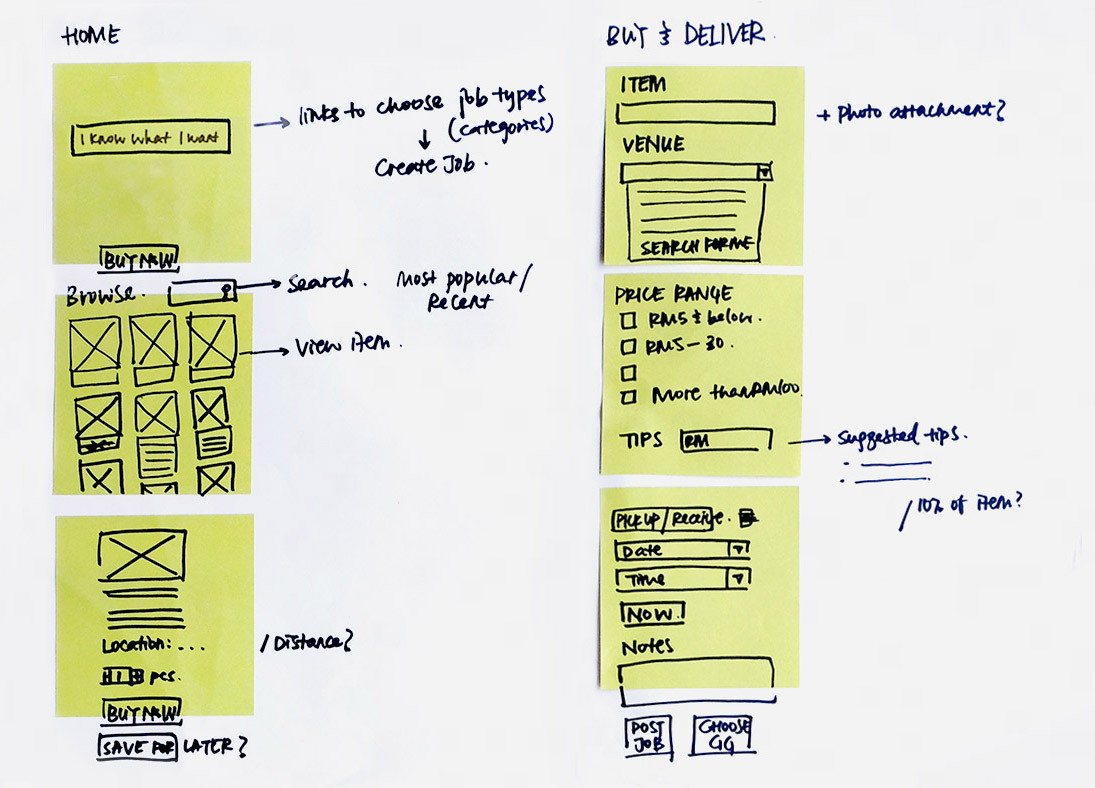 HOME
I know what I want
links to choose job types
(categories)
↓
Create Job.
BUY NOW
Browse.
Search.
Most popular/
Recent
View item.
Location: ...
/ Distance?
1 pcs.
BUY NOW
SAVE FOR LATER?
BUY & DELIVER
ITEM
+ Photo attachment?
VENUE
SEARCH FOR ME
PRICE RANGE
RM5 & below.
RM5 - 30.
More than RM100.
TIPS RM
Suggested tips.
/ 10% of item?
PICK UP / Receive.
Date
Time
NOW
Notes
POST
JOB
CHOOSE
GG